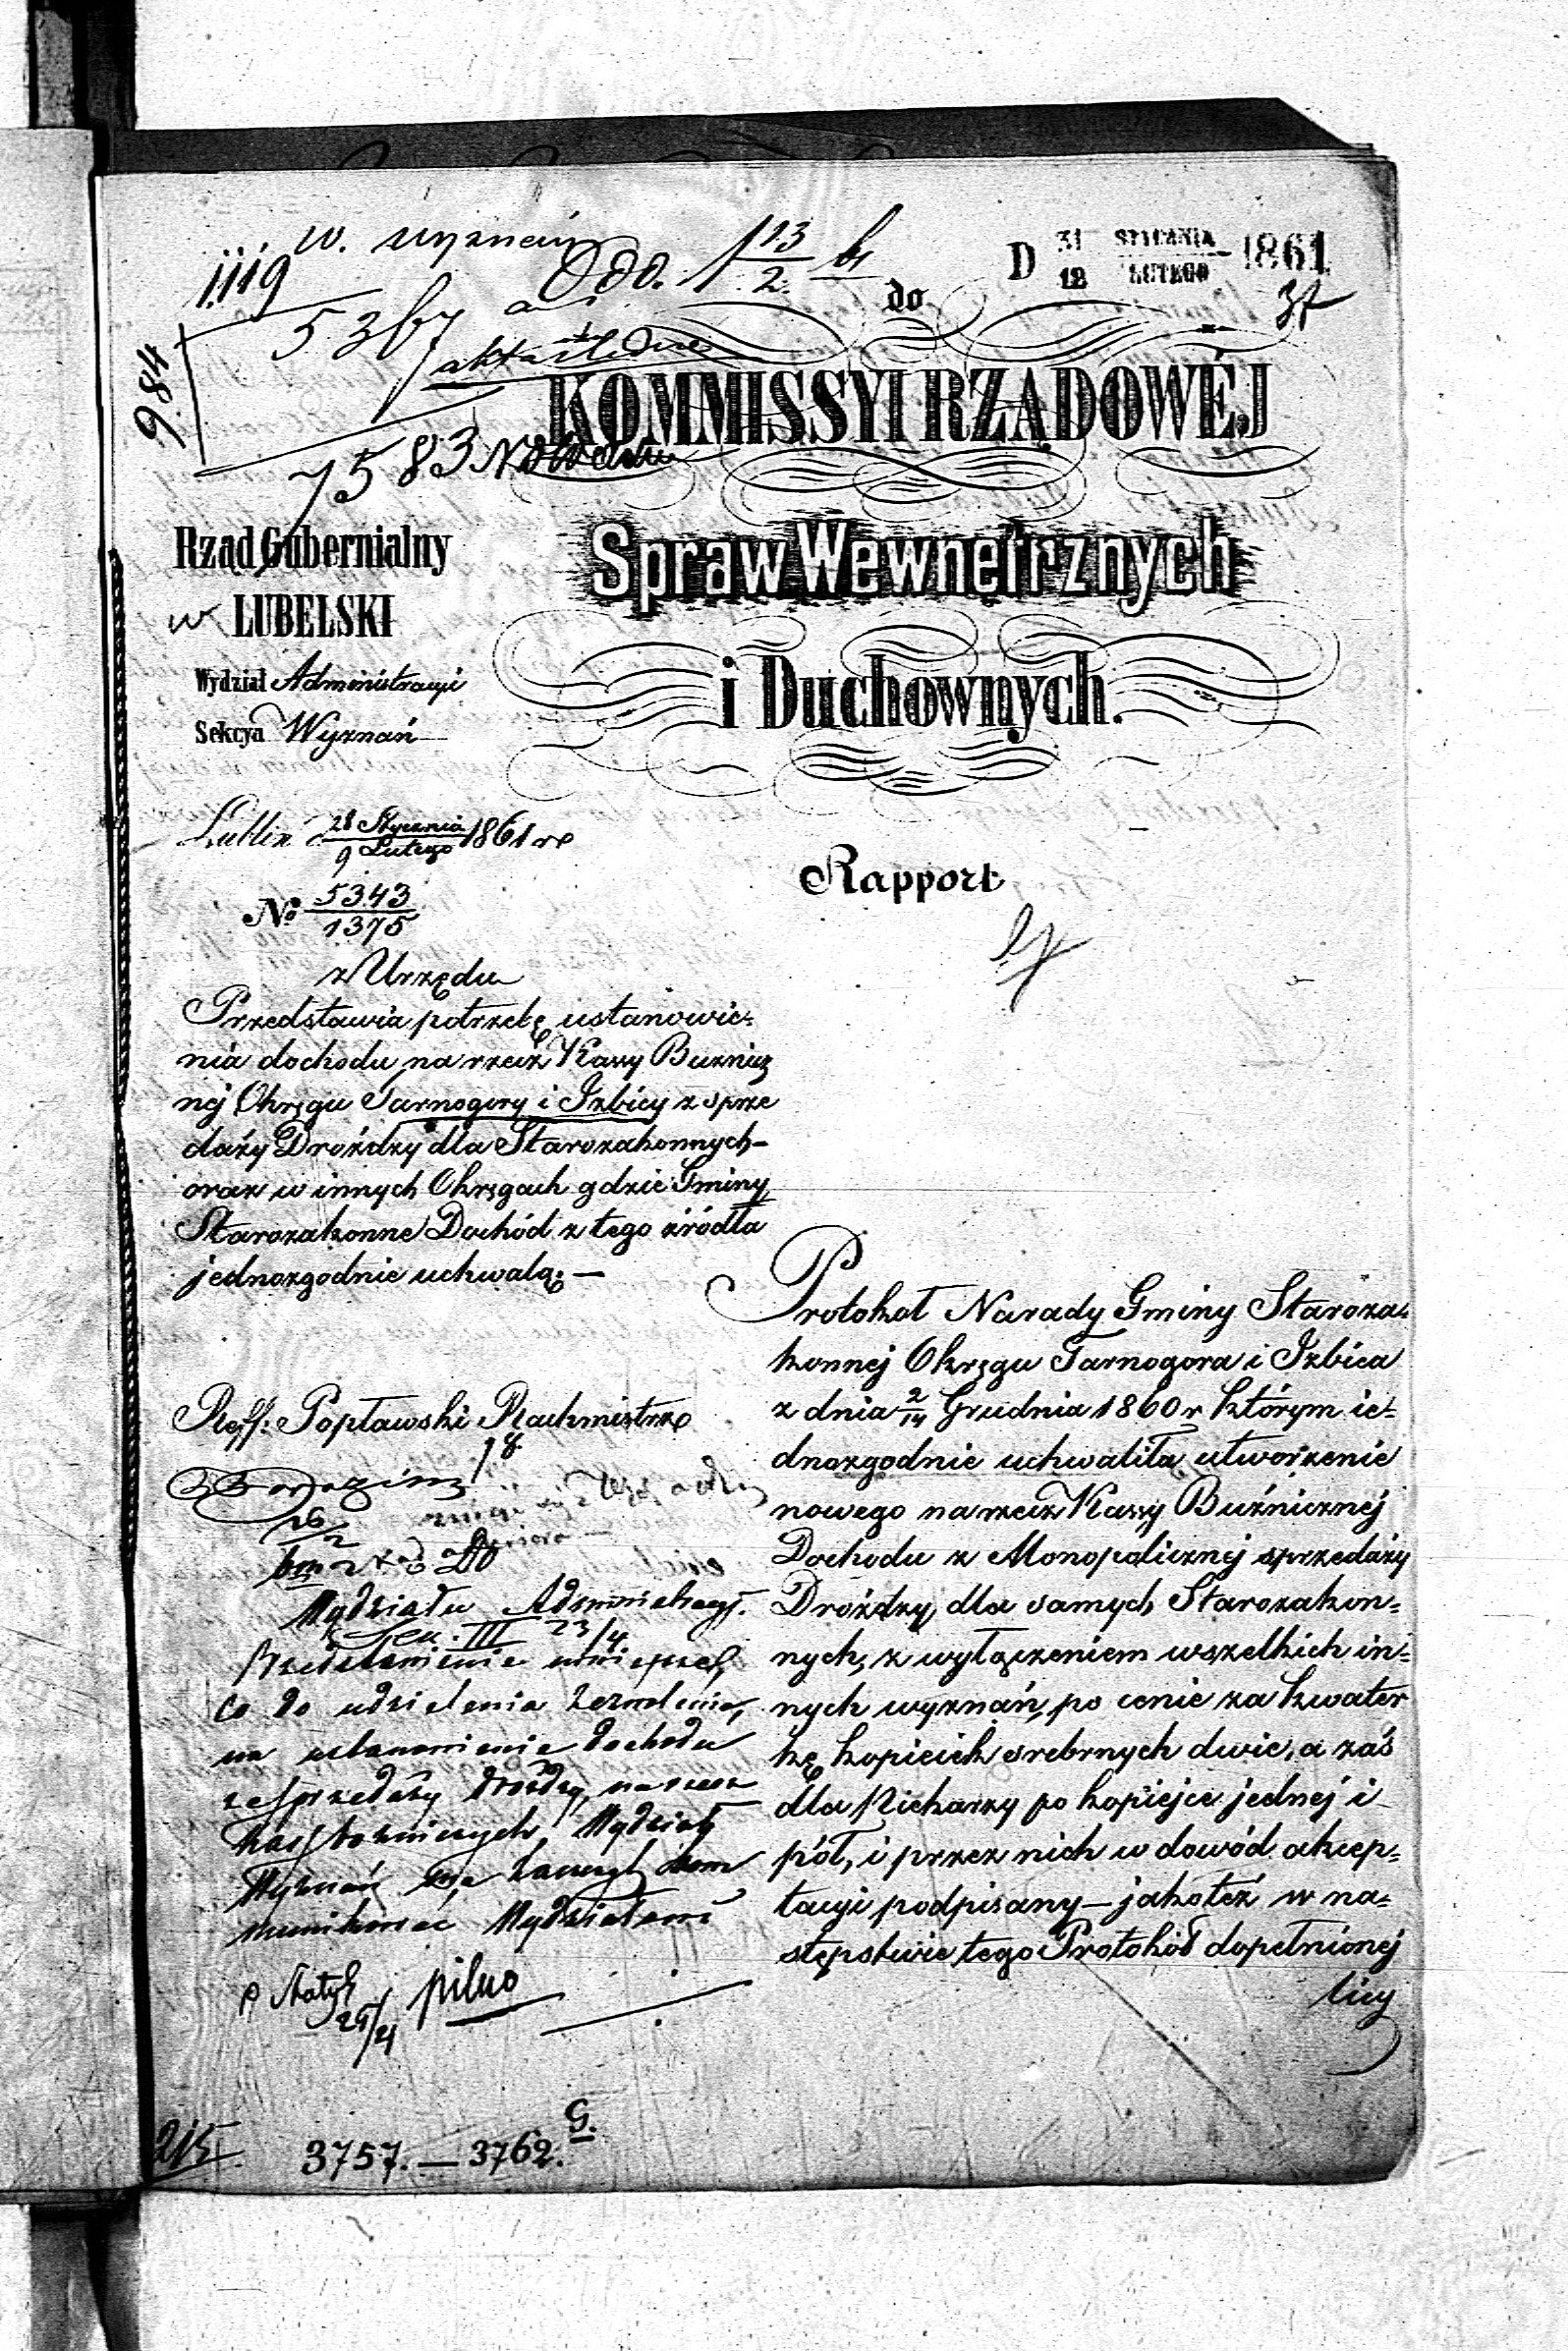 w. wyznań
1119
Odd. 1 13/2 61
D 31/12 STYCZNIA/LUTEGO 1861
37
do
5367
akta
984
7583
KOMMISSYI RZĄDOWÉJ
Spraw Wewnętrznych
i Duchownych.
Rząd Gubernialny
LUBELSKI
Wydział Administracyi
Sekcya Wyznań
Lublin d 28 Stycznia/9 Lutego 1861 r
No 5343/1375
z Urzędu
Przedstawia potrzebę ustanowie-
nia dochodu na rzecz Kassy Buźnicz
nej Okręgu Tarnogóry i Izbicy z sprze
daży Drożdzy dla Starozakonnych
oraz w innych Okręgach gdzie Gminy
Starozakonne Dochód z tego źródła
jednozgodnie uchwalą. —
Reff. Popławski Rachmistrz
Rapport
Protokół Narady Gminy Staroza-
konnej Okręgu Tarnogora i Izbica
z dnia 2/14 Grudnia 1860 r którym ie-
dnozgodnie uchwaliła utworzenie
nowego na rzecz Kassy Buźnicznej
Dochodu z Monopolicznej sprzedaży
Drożdzy, dla samych Starozakon-
nych, z wyłączeniem wszelkich in-
nych wyznań, po cenie za kwater
kę kopieiek srebrnych dwie, a zaś
dla Piekarzy po kopiejce jednej i
pół, i przez nich w dowód akcep-
tacyi podpisany — jakoteż w na-
stępstwie tego Protokół dopełnionej
licy
26/2
Do
Wydziału Administracyj.
Sek. III 23/4
Przedstawienie
co do udzielenia zezwolenia,
na ustanowienie dochodu
ze sprzedaży drożdży, na rzecz
kass bożniczych, Wydział
Wyznań ma zaszczyt kom
munikować Wydziałowi
25/4 pilno
215
3757. — 3762. G.